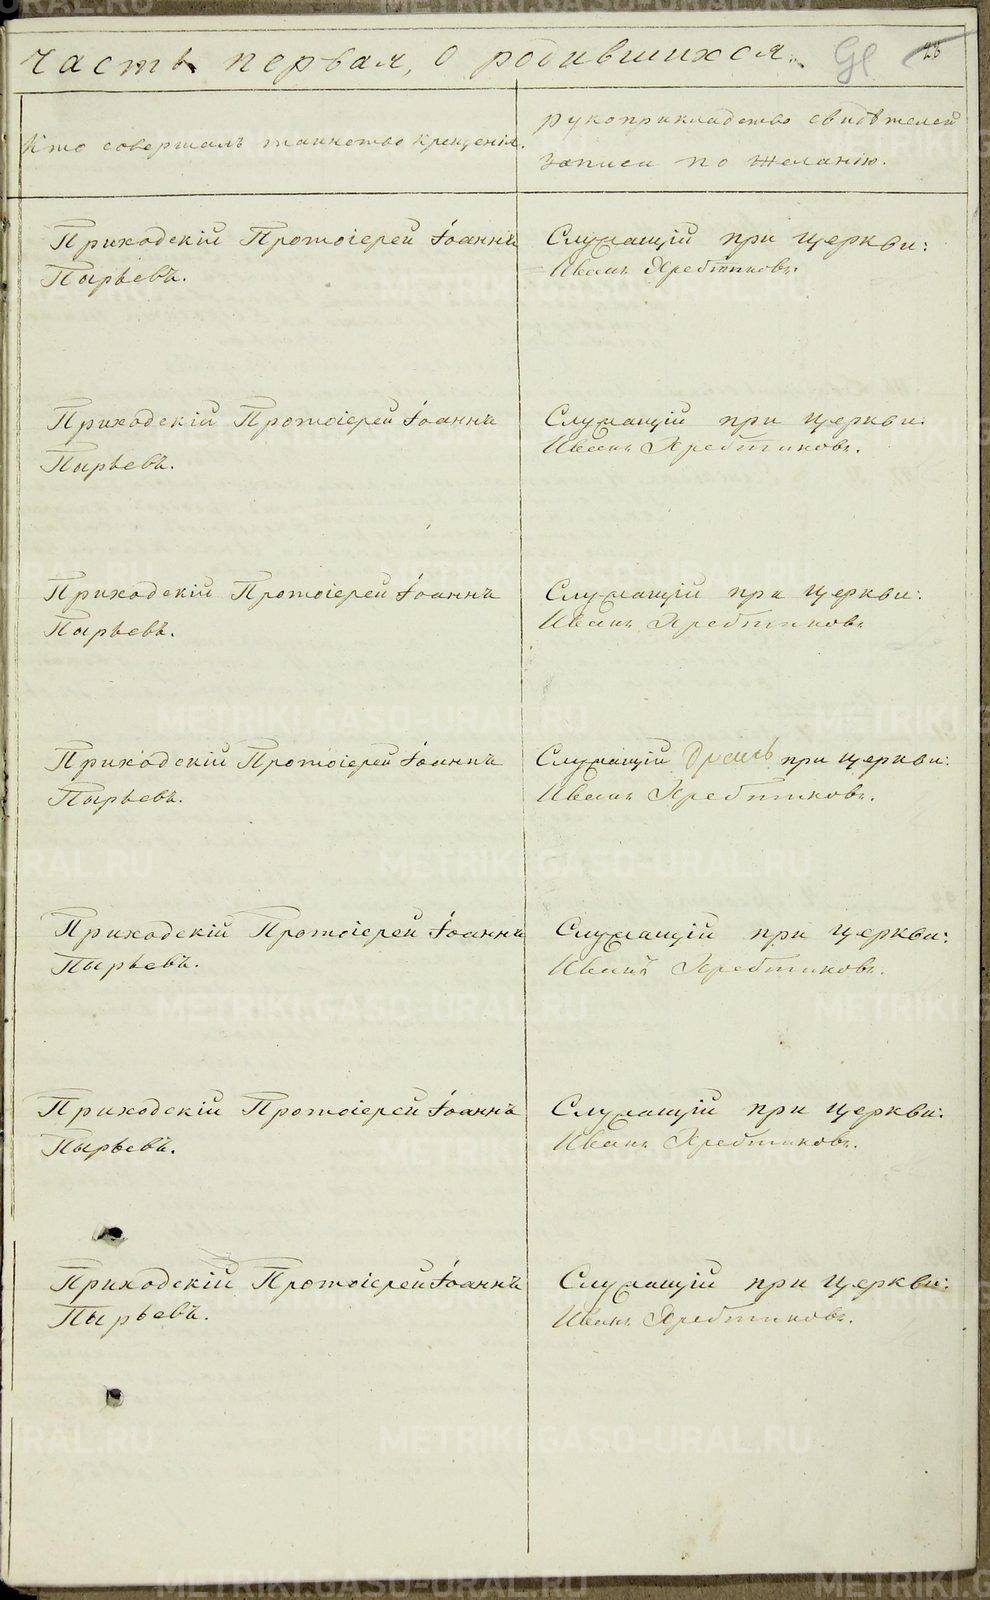 Часть первая, о родившихся.
Кто совершалъ таинство крещенія.
рукоприкладство свидѣтелей
записи по желанію.
Приходскій Протоіерей Іоаннъ
Пырьевъ.
Служащій при церкви:
Иванъ Яребтиковъ.
Приходскій Протоіерей Іоаннъ
Пырьевъ.
Служащій при церкви:
Иванъ Яребтиковъ.
Приходскій Протоіерей Іоаннъ
Пырьевъ.
Служащій при церкви:
Иванъ Яребтиковъ.
Приходскій Протоіерей Іоаннъ
Пырьевъ.
Служащій при церкви:
Иванъ Яребтиковъ.
Приходскій Протоіерей Іоаннъ
Пырьевъ.
Служащій при церкви:
Иванъ Яребтиковъ.
Приходскій Протоіерей Іоаннъ
Пырьевъ.
Служащій при церкви:
Иванъ Яребтиковъ.
Приходскій Протоіерей Іоаннъ
Пырьевъ.
Служащій при церкви:
Иванъ Яребтиковъ.